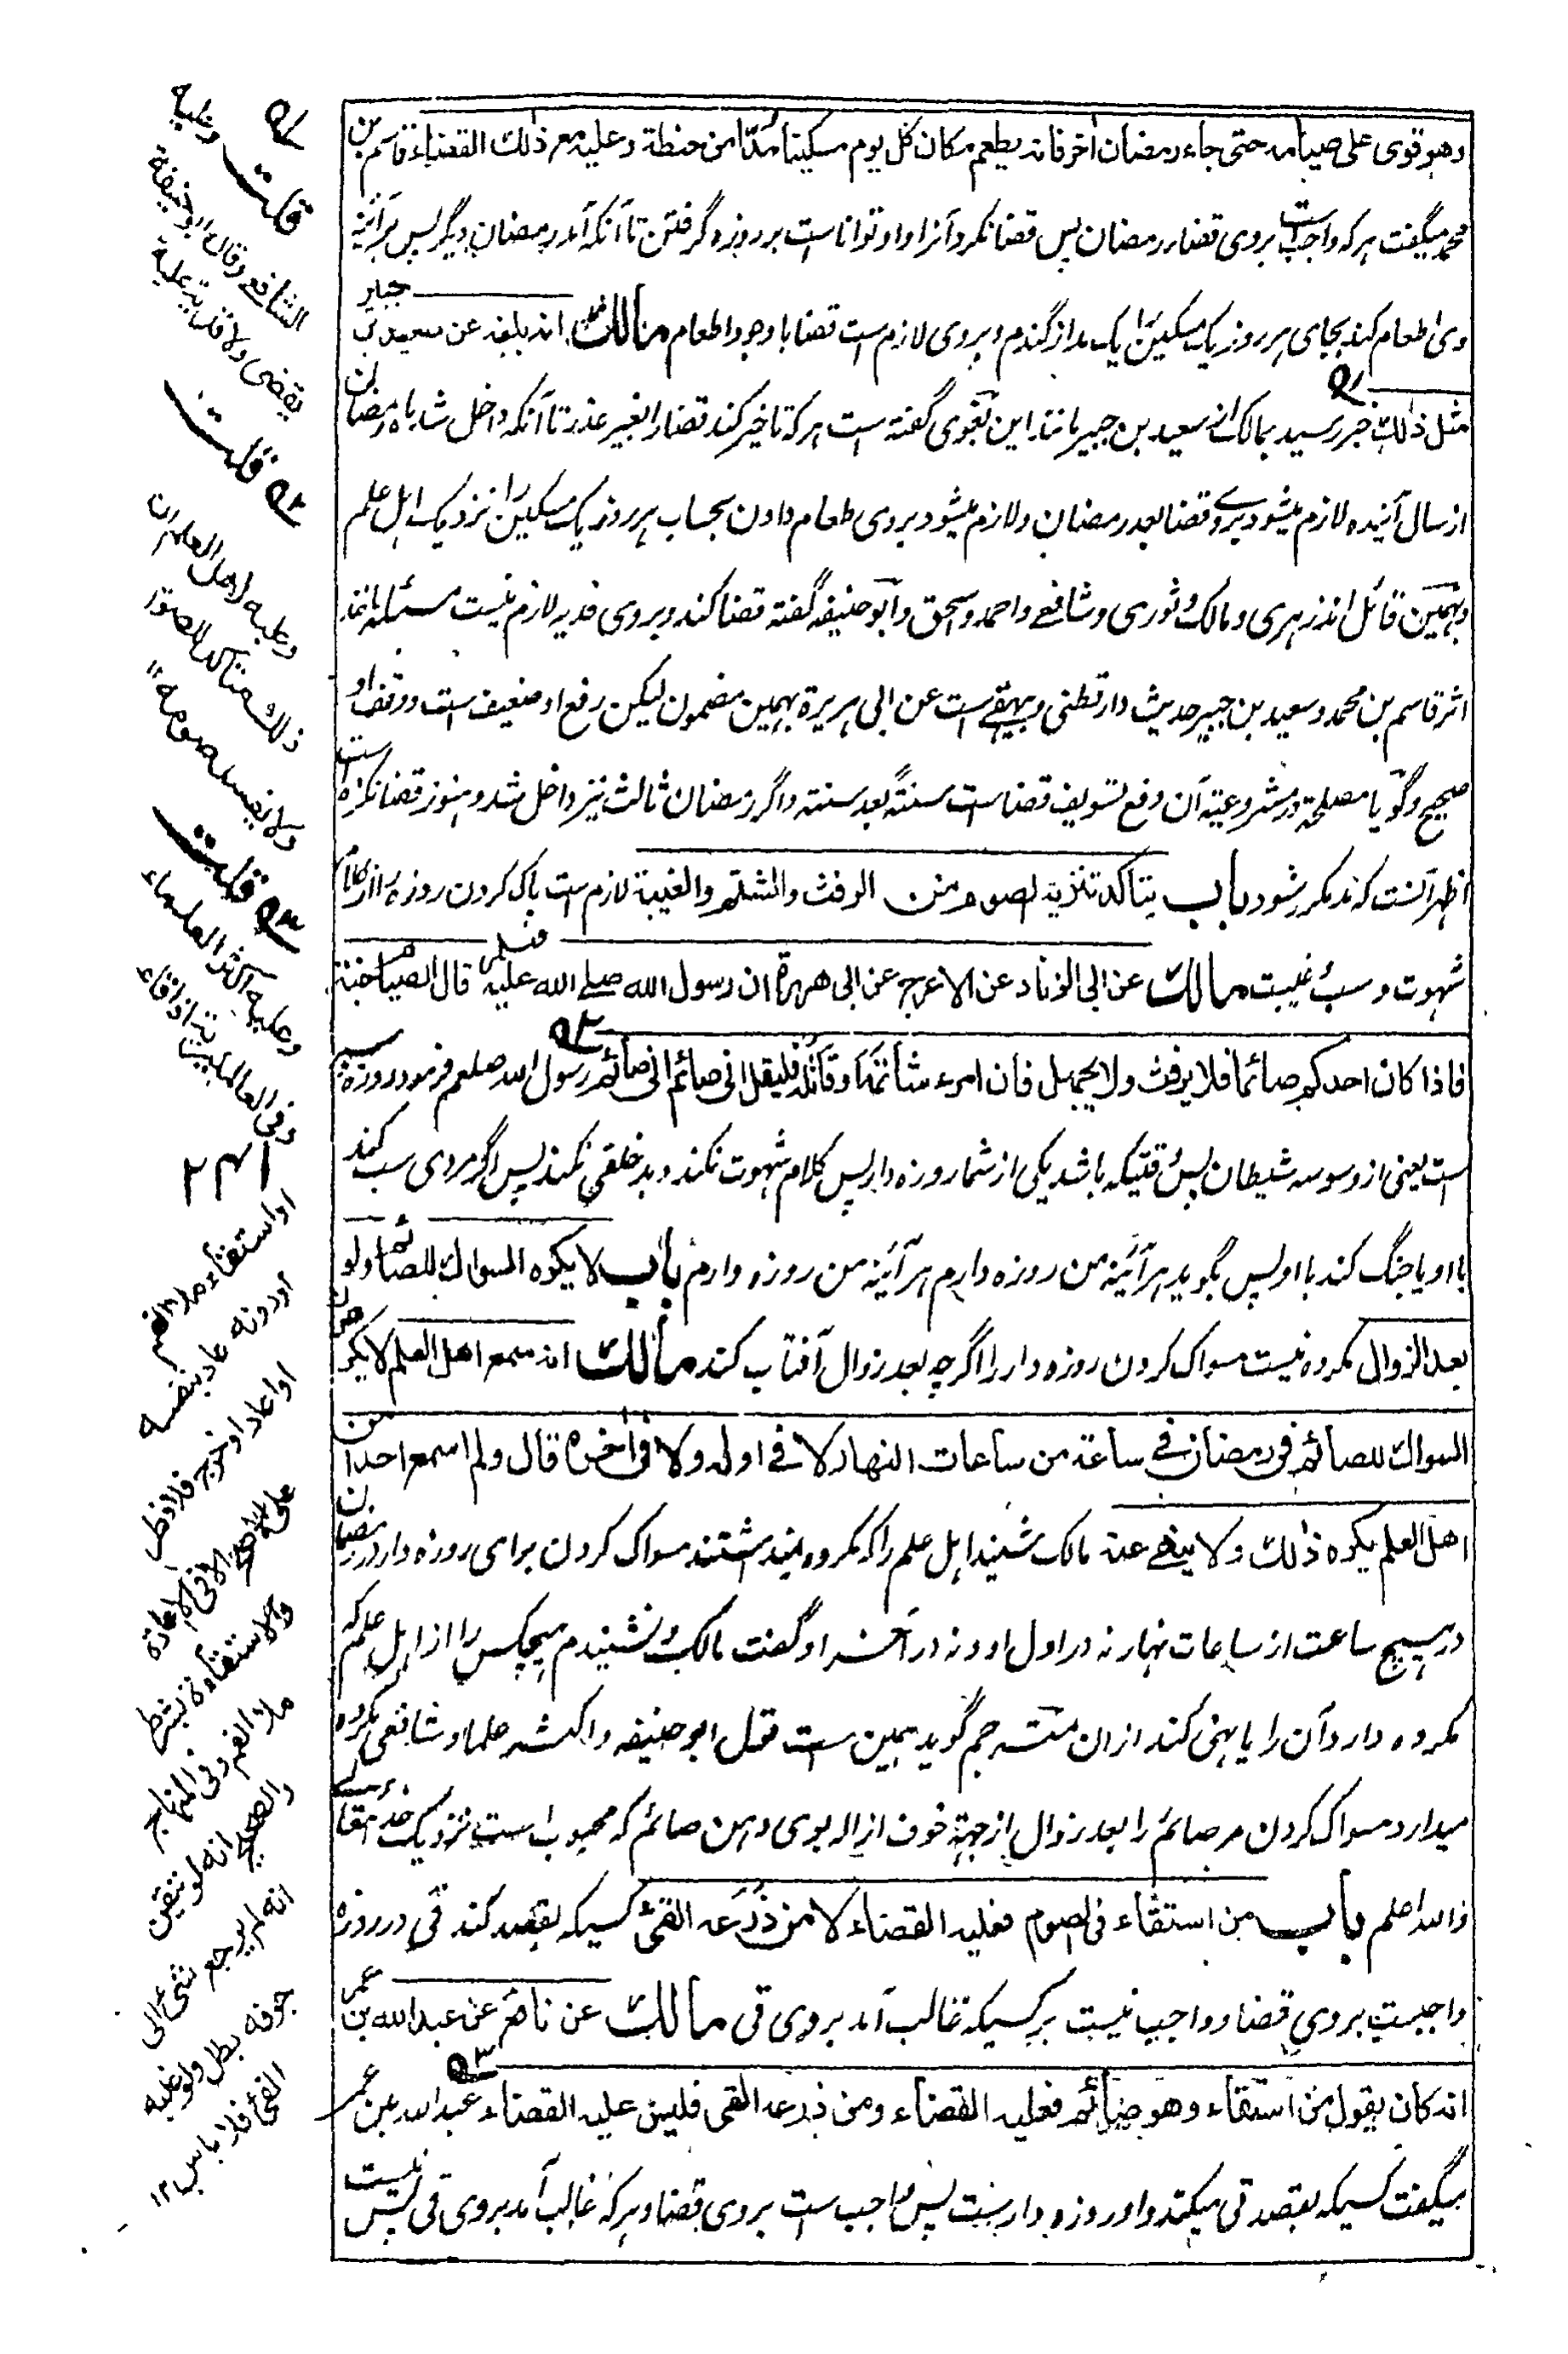 وهو قوى على صيامه حتى جاء رمضان اخر فانه يطعم مكان كل يوم مسكينا مدّا من حنطة وعليه مع ذلك القضاء قاسم بن
محمد میگفت هر که واجب است بروی قضاء رمضان پس قضا نکرد آنرا و او توانا است بر روزه گرفتن تا آنکه آمد رمضان دیگر پس هر آئینه
وی اطعام کند بجای هر روز یک مسکین را یک مد از گندم و بروی لازم است قضا با وجود اطعام مالك انه بلغه عن سعيد بن جبير
مثل ذلك خبر رسید بمالک از سعید بن جبیر مانند این بغوی گفته است هر که تاخیر کند قضا را بغیر عذر تا آنکه داخل شد ماه رمضان
از سال آئنده لازم میشود بروے قضا بعد رمضان و لازم میشود بروی طعام دادن بحساب هر روز یک مسکین را نزدیک اهل علم
و بهمین قائل اند زهری و مالک و ثوری و شافعے و احمد و اسحق و ابو حنیفه گفته قضا کند و بروی فدیه لازم نیست مسئله مانند
اثر قاسم بن محمد و سعید بن جبیر حدیث دارقطنی و بیهقے است عن ابی هریرة بهمین مضمون لیکن رفع او ضعیف است و وقف او
صحیح و گویا مصلحة در مشروعیة آن دفع تسویف قضا است سنة بعد سنة و اگر رمضان ثالث نیز داخل شد و هنوز قضا نکرده است
اظهر آنست که مد مکرر شود باب يتاكد تنزيه الصوم من الرفث والشتم والغيبة لازم است پاک کردن روزه را از کلام
شهوت و سب و غیبت مالك عن ابى الزناد عن الاعرج عن ابى هريرة ان رسول الله صلے الله عليه وسلم قال الصيام جنة
فاذا كان احدكم صائما فلا يرفث ولا يجهل فان امرء شاتمه او قاتله فليقل انى صائم انى صائم رسول الله صلعم فرمود روزه سپر
است یعنی از وسوسه شیطان پس وقتیکه باشد یکی از شما روزه دار پس کلام شهوت نکند و بد خلقی نکند پس اگر مردی سب کند
با او یا جنگ کند با او پس بگوید هر آئینه من روزه دارم هر آئینه من روزه دارم باب لا يكره السواك للصائم ولو
بعد الزوال مکروه نیست مسواک کردن روزه دار را اگرچه بعد زوال آفتاب کند مالك انه سمع اهل العلم لا يكرهون
السواك للصائم فى رمضان فے ساعة من ساعات النهار لا فے اوله ولا فى اخره قال ولم اسمع احدا من
اهل العلم يكره ذلك ولا ينهے عنه مالک شنید اهل علم را که مکروه نمیداشتند مسواک کردن برای روزه دار در رمضان
در هیچ ساعت از ساعات نهار نه در اول او و نه در آخر او گفت مالک و نشنیدم هیچکس را از اهل علم که
مکروه دارد آن را یا نهی کند ازان مترجم گوید همین است قول ابو حنیفه و اکثر علما و شافعی مکروه
میدارد مسواک کردن مر صائم را بعد زوال از جهة خوف ازاله بوی دهن صائم که محبوب است نزدیک خدائتعالی
والله اعلم باب من استقاء فى الصوم فعليه القضاء لا من ذرعه القئ کسیکه بقصد کند قی در روزه
واجبست بروی قضا و واجب نیست بر کسیکه غالب آمد بروی قی مالك عن نافع عن عبد الله بن عمر
انه كان يقول من استقاء وهو صائم فعليه القضاء ومن ذرعه القى فليس عليه القضاء عبد الله بن عمر
میگفت کسیکه بقصد قی میکند و او روزه دار ست پس واجب است بروی قضا و هر که غالب آمد بروی قی پس نیست
۱ قلت وعليه
الشافعے وقال ابو حنيفة
يقضى ولا فدية عليه
۲ قلت
وعليه اهل العلم ان
ذلك متاكد للصوم
ولا يفسد صومه ١٢
۳ قلت
وعليه اكثر العلماء
وفى العالمگيرية اذا قاء
او استقاء ملأ الفم
او دونه عاد بنفسه
او اعاد او خرج فلا فطر
على الاصح الا فى الاعادة
والاستقاءة بشرط
ملأ الفم وفى المنهاج
والصحيح انه لو تيقن
انه لم يرجع شئ الى
جوفه بطل ولو غلبه
القئ فلا باس ١٢